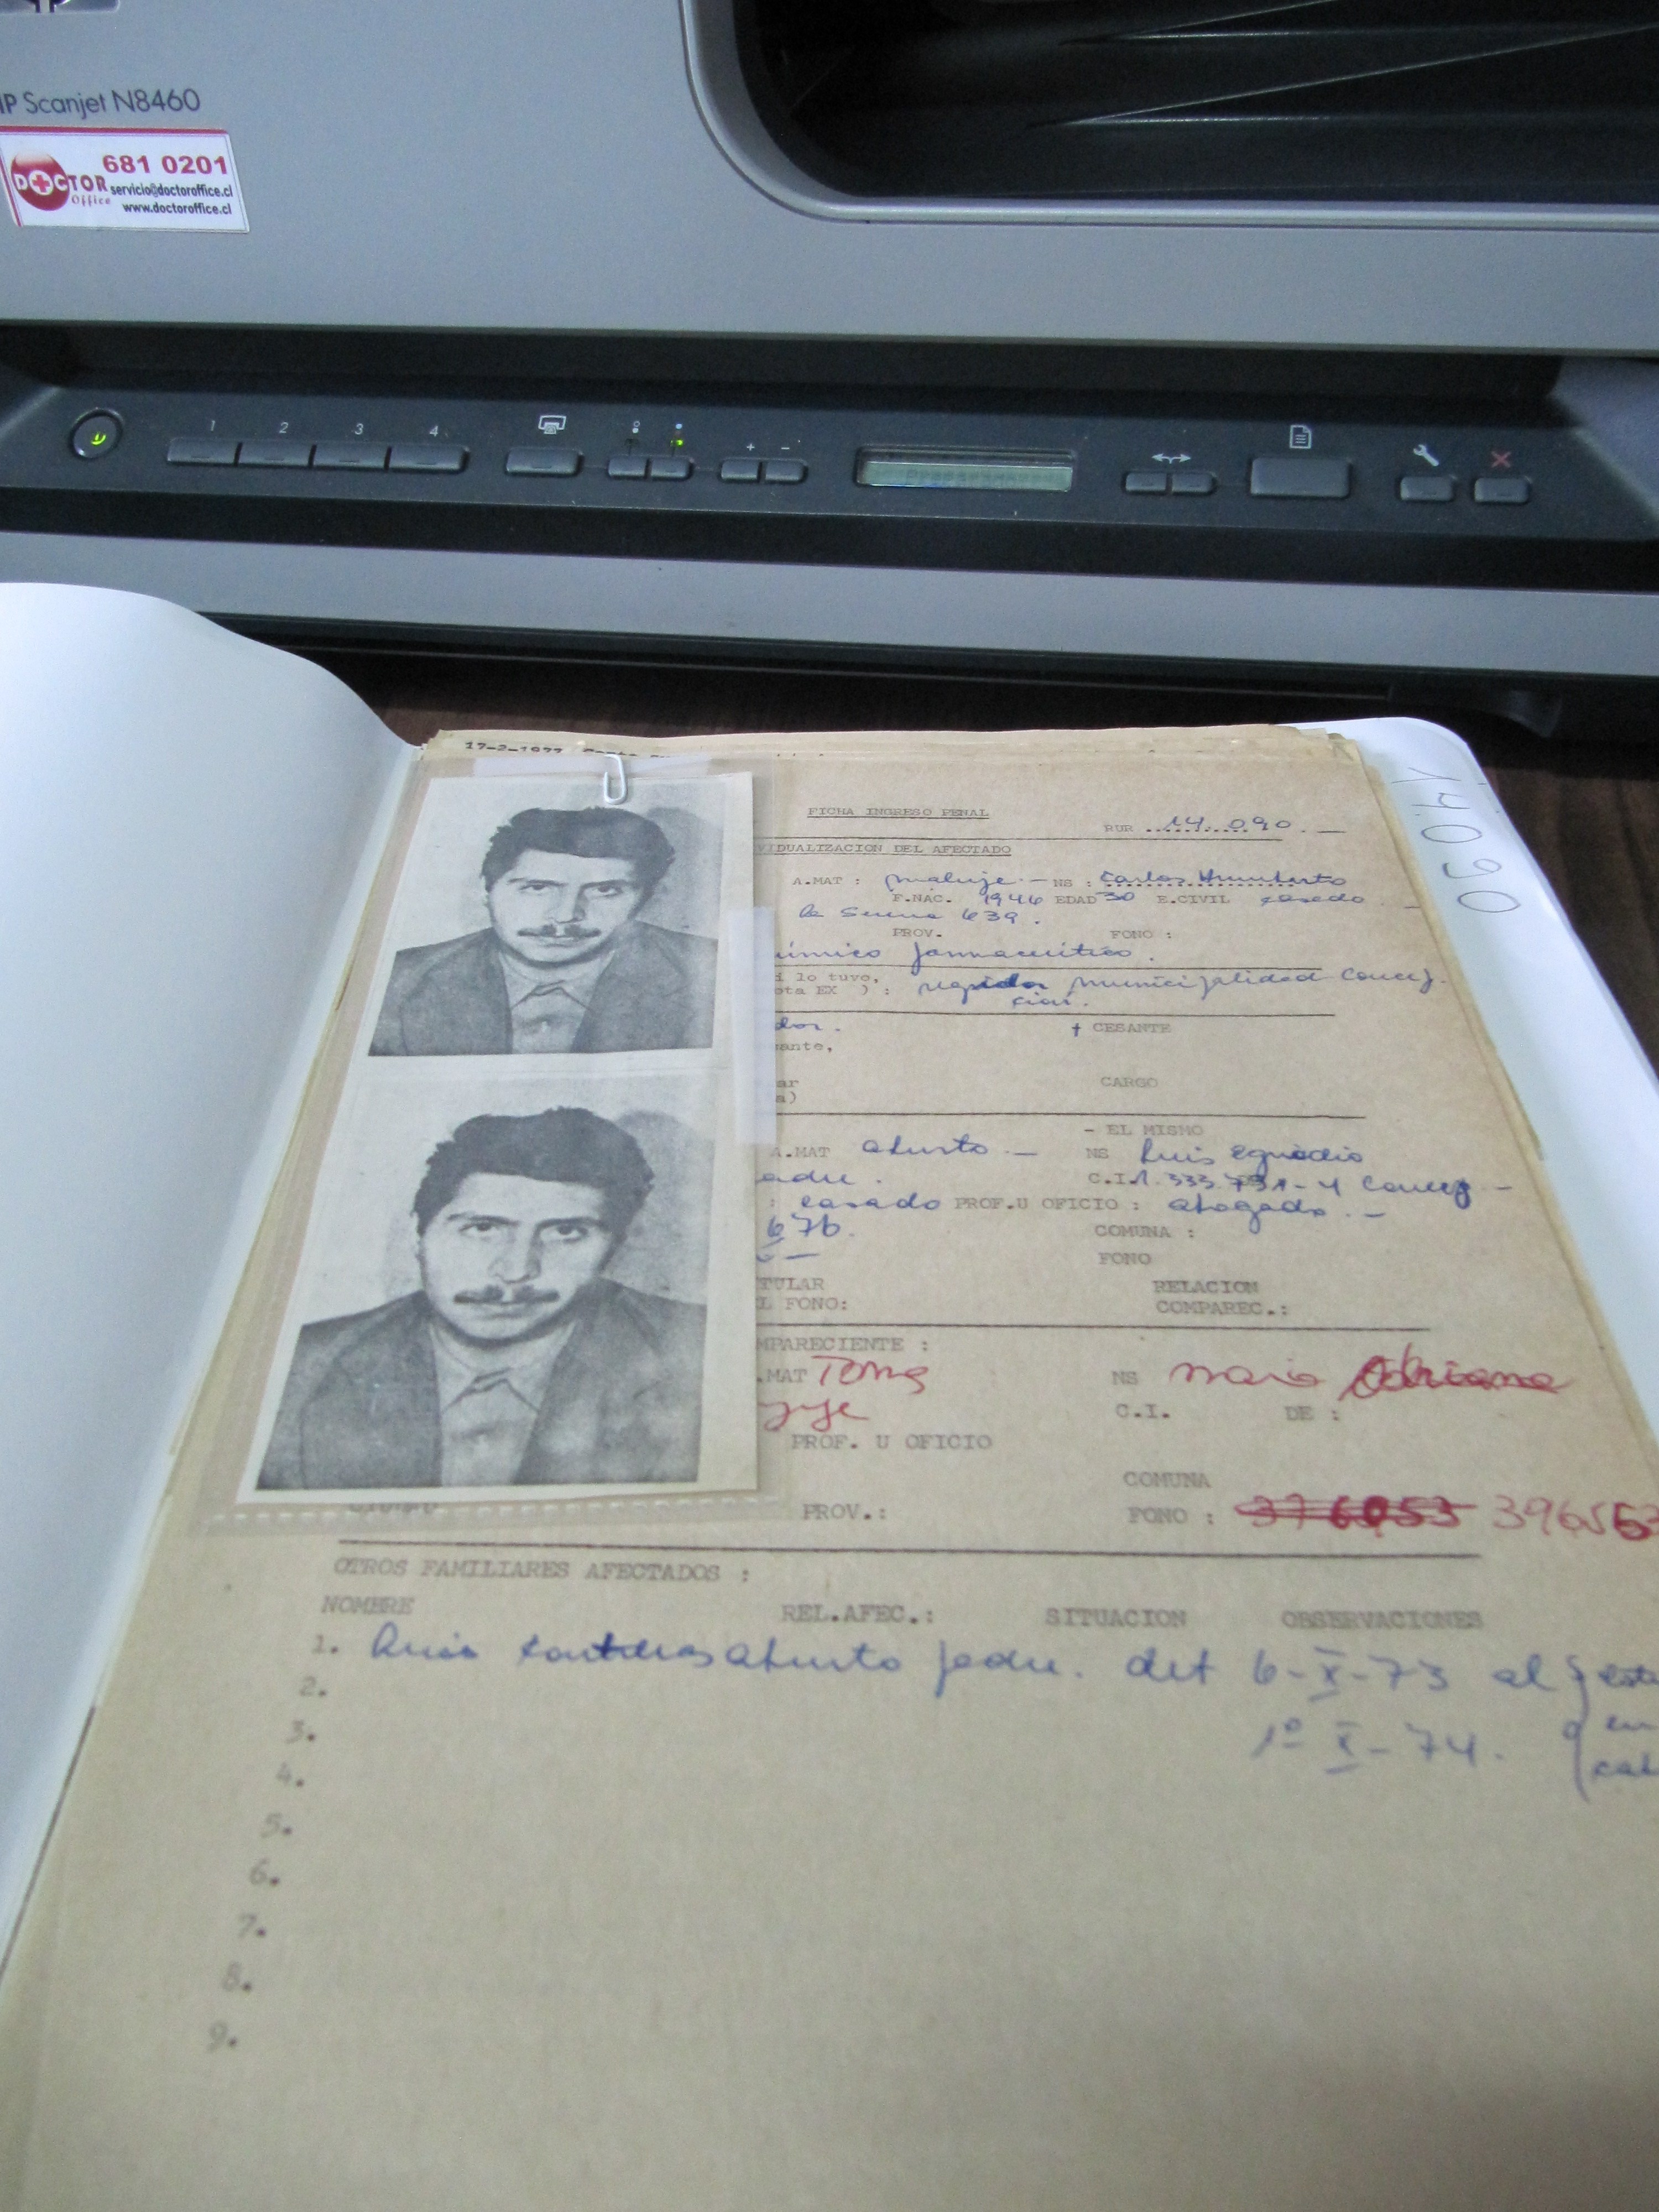 HP Scanjet N8460
DOCTOR Office 681 0201
servicio@doctoroffice.cl
www.doctoroffice.cl
1 2 3 4
+ -
17-2-1977
14.090
FICHA INGRESO PENAL
RUR 14.090.-
VIDUALIZACION DEL AFECTADO
A.MAT : Maluje.- NS : Carlos Humberto
F.NAC. 1946 EDAD 30 E.CIVIL casado.-
La Serena 639.
PROV. FONO :
químico farmaceútico.
i lo tuvo,
ota EX ) : regidor Municipalidad Concep.
ción.
dor. † CESANTE
ante,
ar CARGO
a)
- EL MISMO
A.MAT Aburto.- NS Luis Egidio
padre. C.I. 1.333.731-4 Concep-
: casado PROF.U OFICIO : abogado.-
676. COMUNA :
FONO
TULAR RELACION
L FONO: COMPAREC.:
MPARECIENTE :
.MAT NS Maria Adriana
C.I. DE :
PROF. U OFICIO
COMUNA
PROV.: FONO : 376053 396563
OTROS FAMILIARES AFECTADOS :
NOMBRE REL.AFEC.: SITUACION OBSERVACIONES
1. Luis Contreras Aburto padre. det 6-X-73 al
2.
3. 1º X-74.
4.
5.
6.
7.
8.
9.